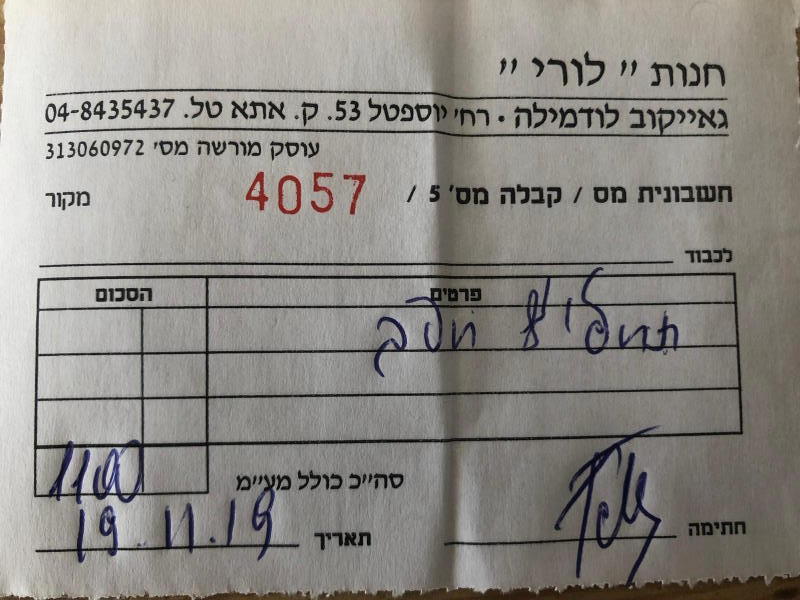 חנות "לורי"
גאייקוב לודמילה • רח' יוספטל 53. ק. אתא טל. 04-8435437
עוסק מורשה מס' 313060972
חשבונית מס / קבלה מס' 5 / 4057 מקור
לכבוד
פרטים הסכום
סה"כ כולל מע"מ 1100
חתימה תאריך 19.11.19